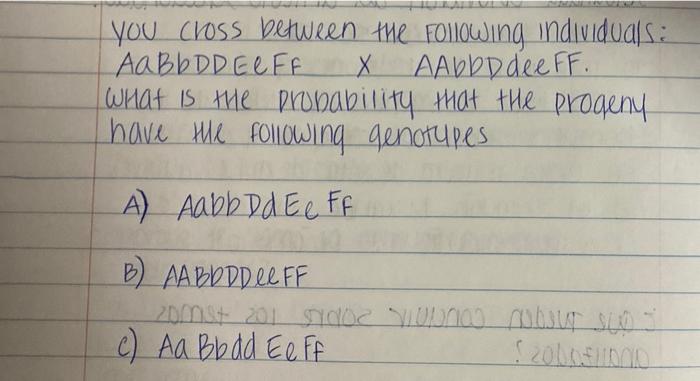 you cross between the following individuals:
AaBbDDEeFf X AAbbDdeeFF.
What is the probability that the progeny
have the following genotypes
A) AabbDdEeFf
B) AABbDDeeFF
C) AaBbddEeFf